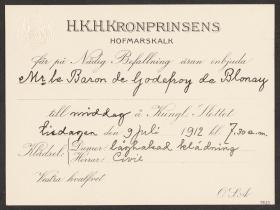 H.K.H. KRONPRINSENS
HOFMARSKALK
får på Nådig Befallning äran inbjuda
Mr le Baron de Godefroy de Blonay
till middag å Kungl. Slottet
tisdagen den 9 juli 1912 kl. 7.30 e.m.
Klädsel: Damer: låghalsad klädning
Herrar: Civil
Västra hvalfvet
O.S.A.